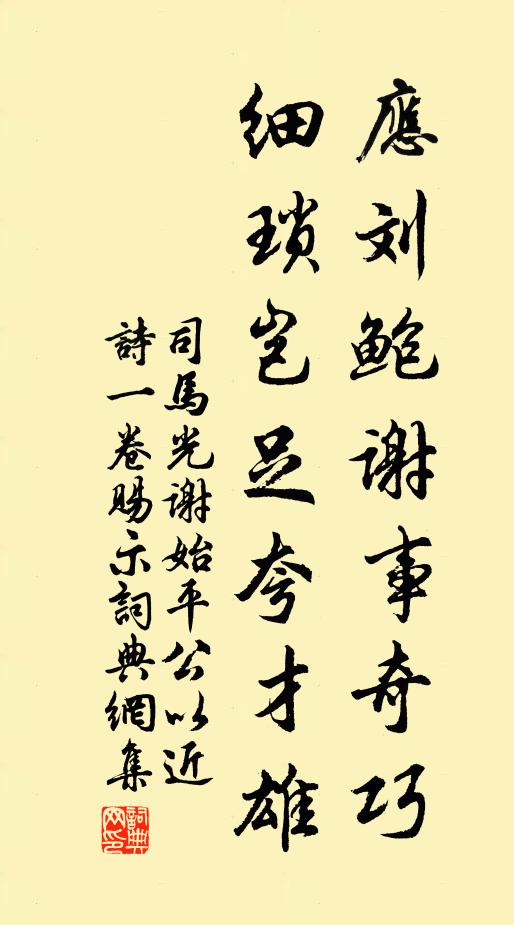 應刘鲍謝事奇巧
细琐岂足夸才雄
司馬光謝始平公以近
詩一卷賜示詞典網集
詞典
网印